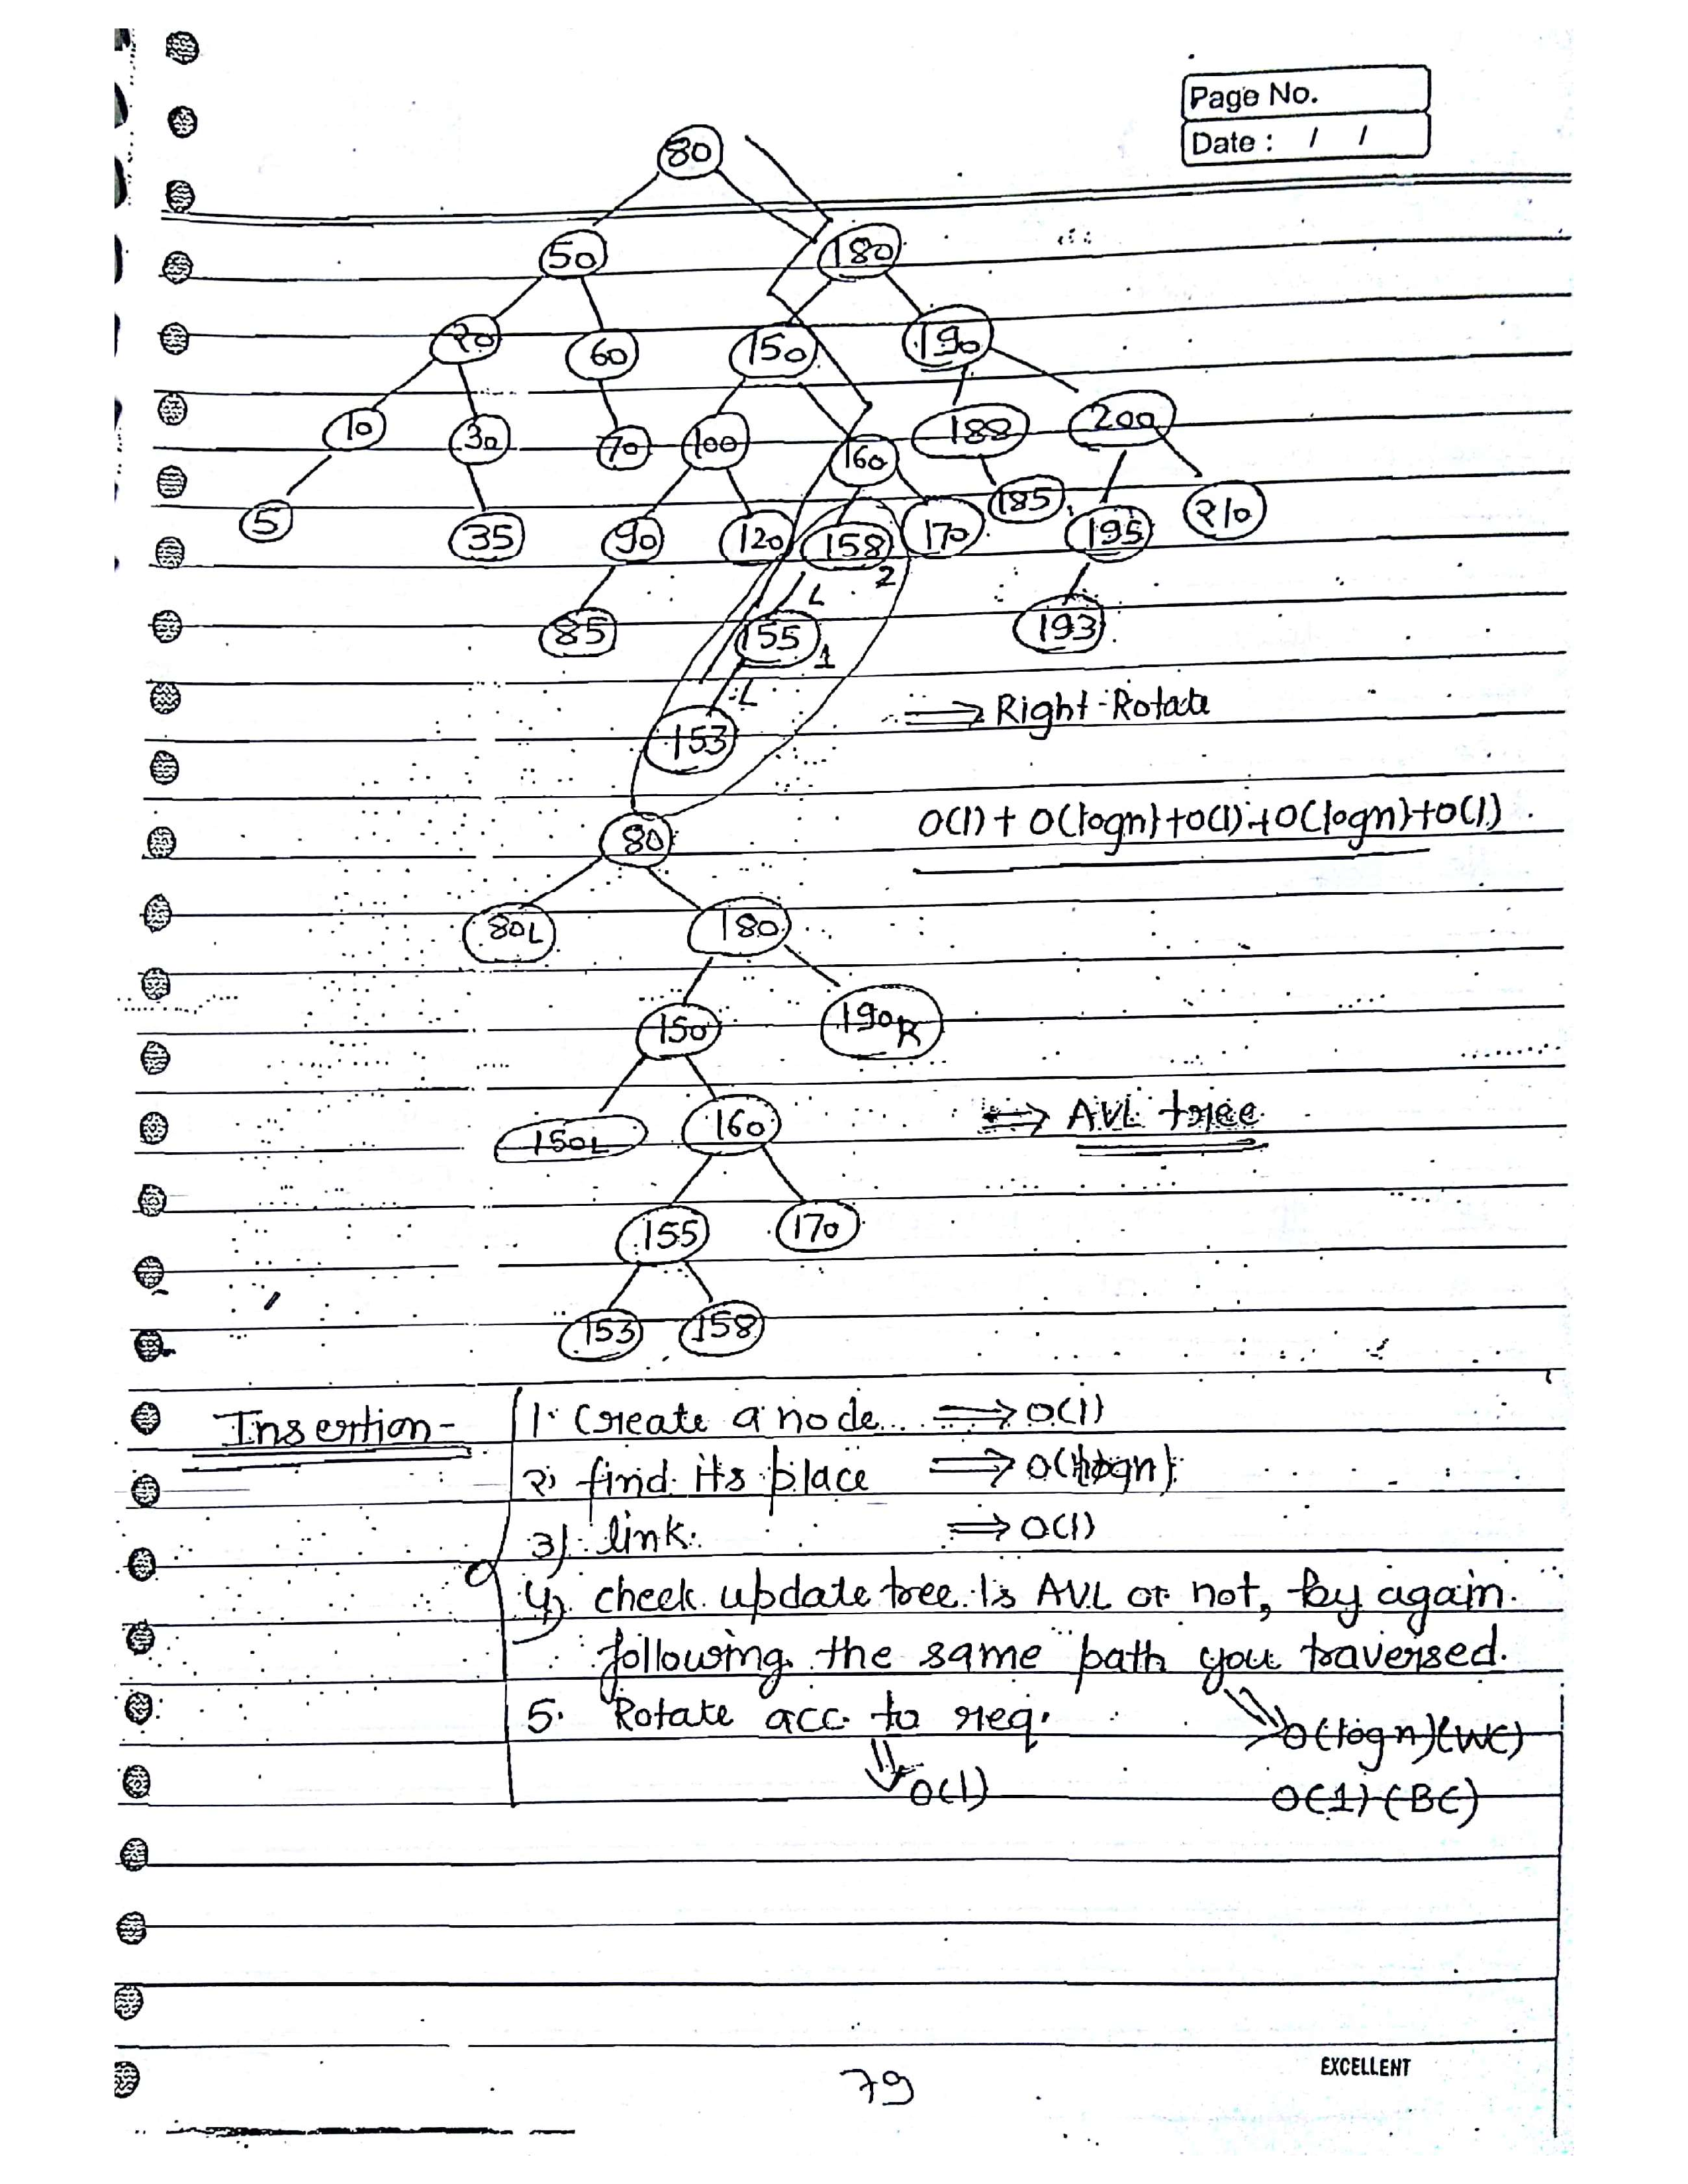 Page No.
Date : / /
80
50 180
20 60 150 190
10 30 70 100 160 188 200
5 35 90 120 158 170 185 195 210
2
L
85 155 193
1
L
153
⇒ Right-Rotate
O(1) + O(logn) + O(1) + O(logn) + O(1)
80
80L 180
150 190R
150L 160
⇒ AVL tree
155 170
153 158
Insertion-
1. Create a node ⇒ O(1)
2) find its place ⇒ O(logn)
3) link. ⇒ O(1)
4) check update tree is AVL or not, by again
following the same path you traversed.
5. Rotate acc. to req.
⇒ O(logn)(WC)
⇒ O(1)
O(1)(BC)
79
EXCELLENT